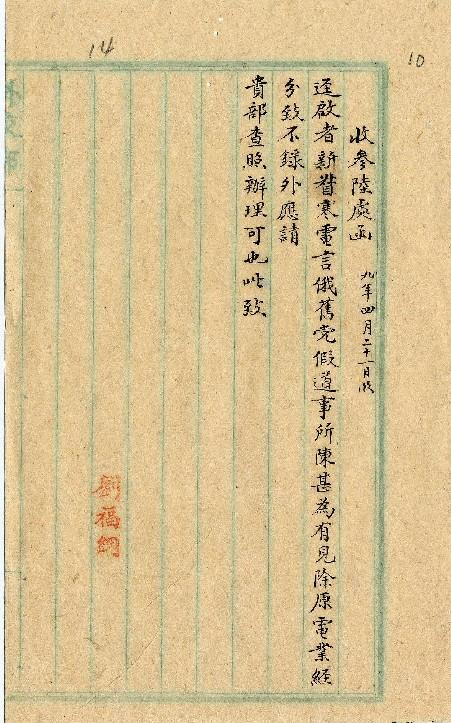 14
10
收參陸處函 九年四月二十一日收
逕啟者新督寒電言俄舊党假道事所陳甚為有見除原電業經
分致不錄外應請
貴部查照辦理可也此致
劉福綱